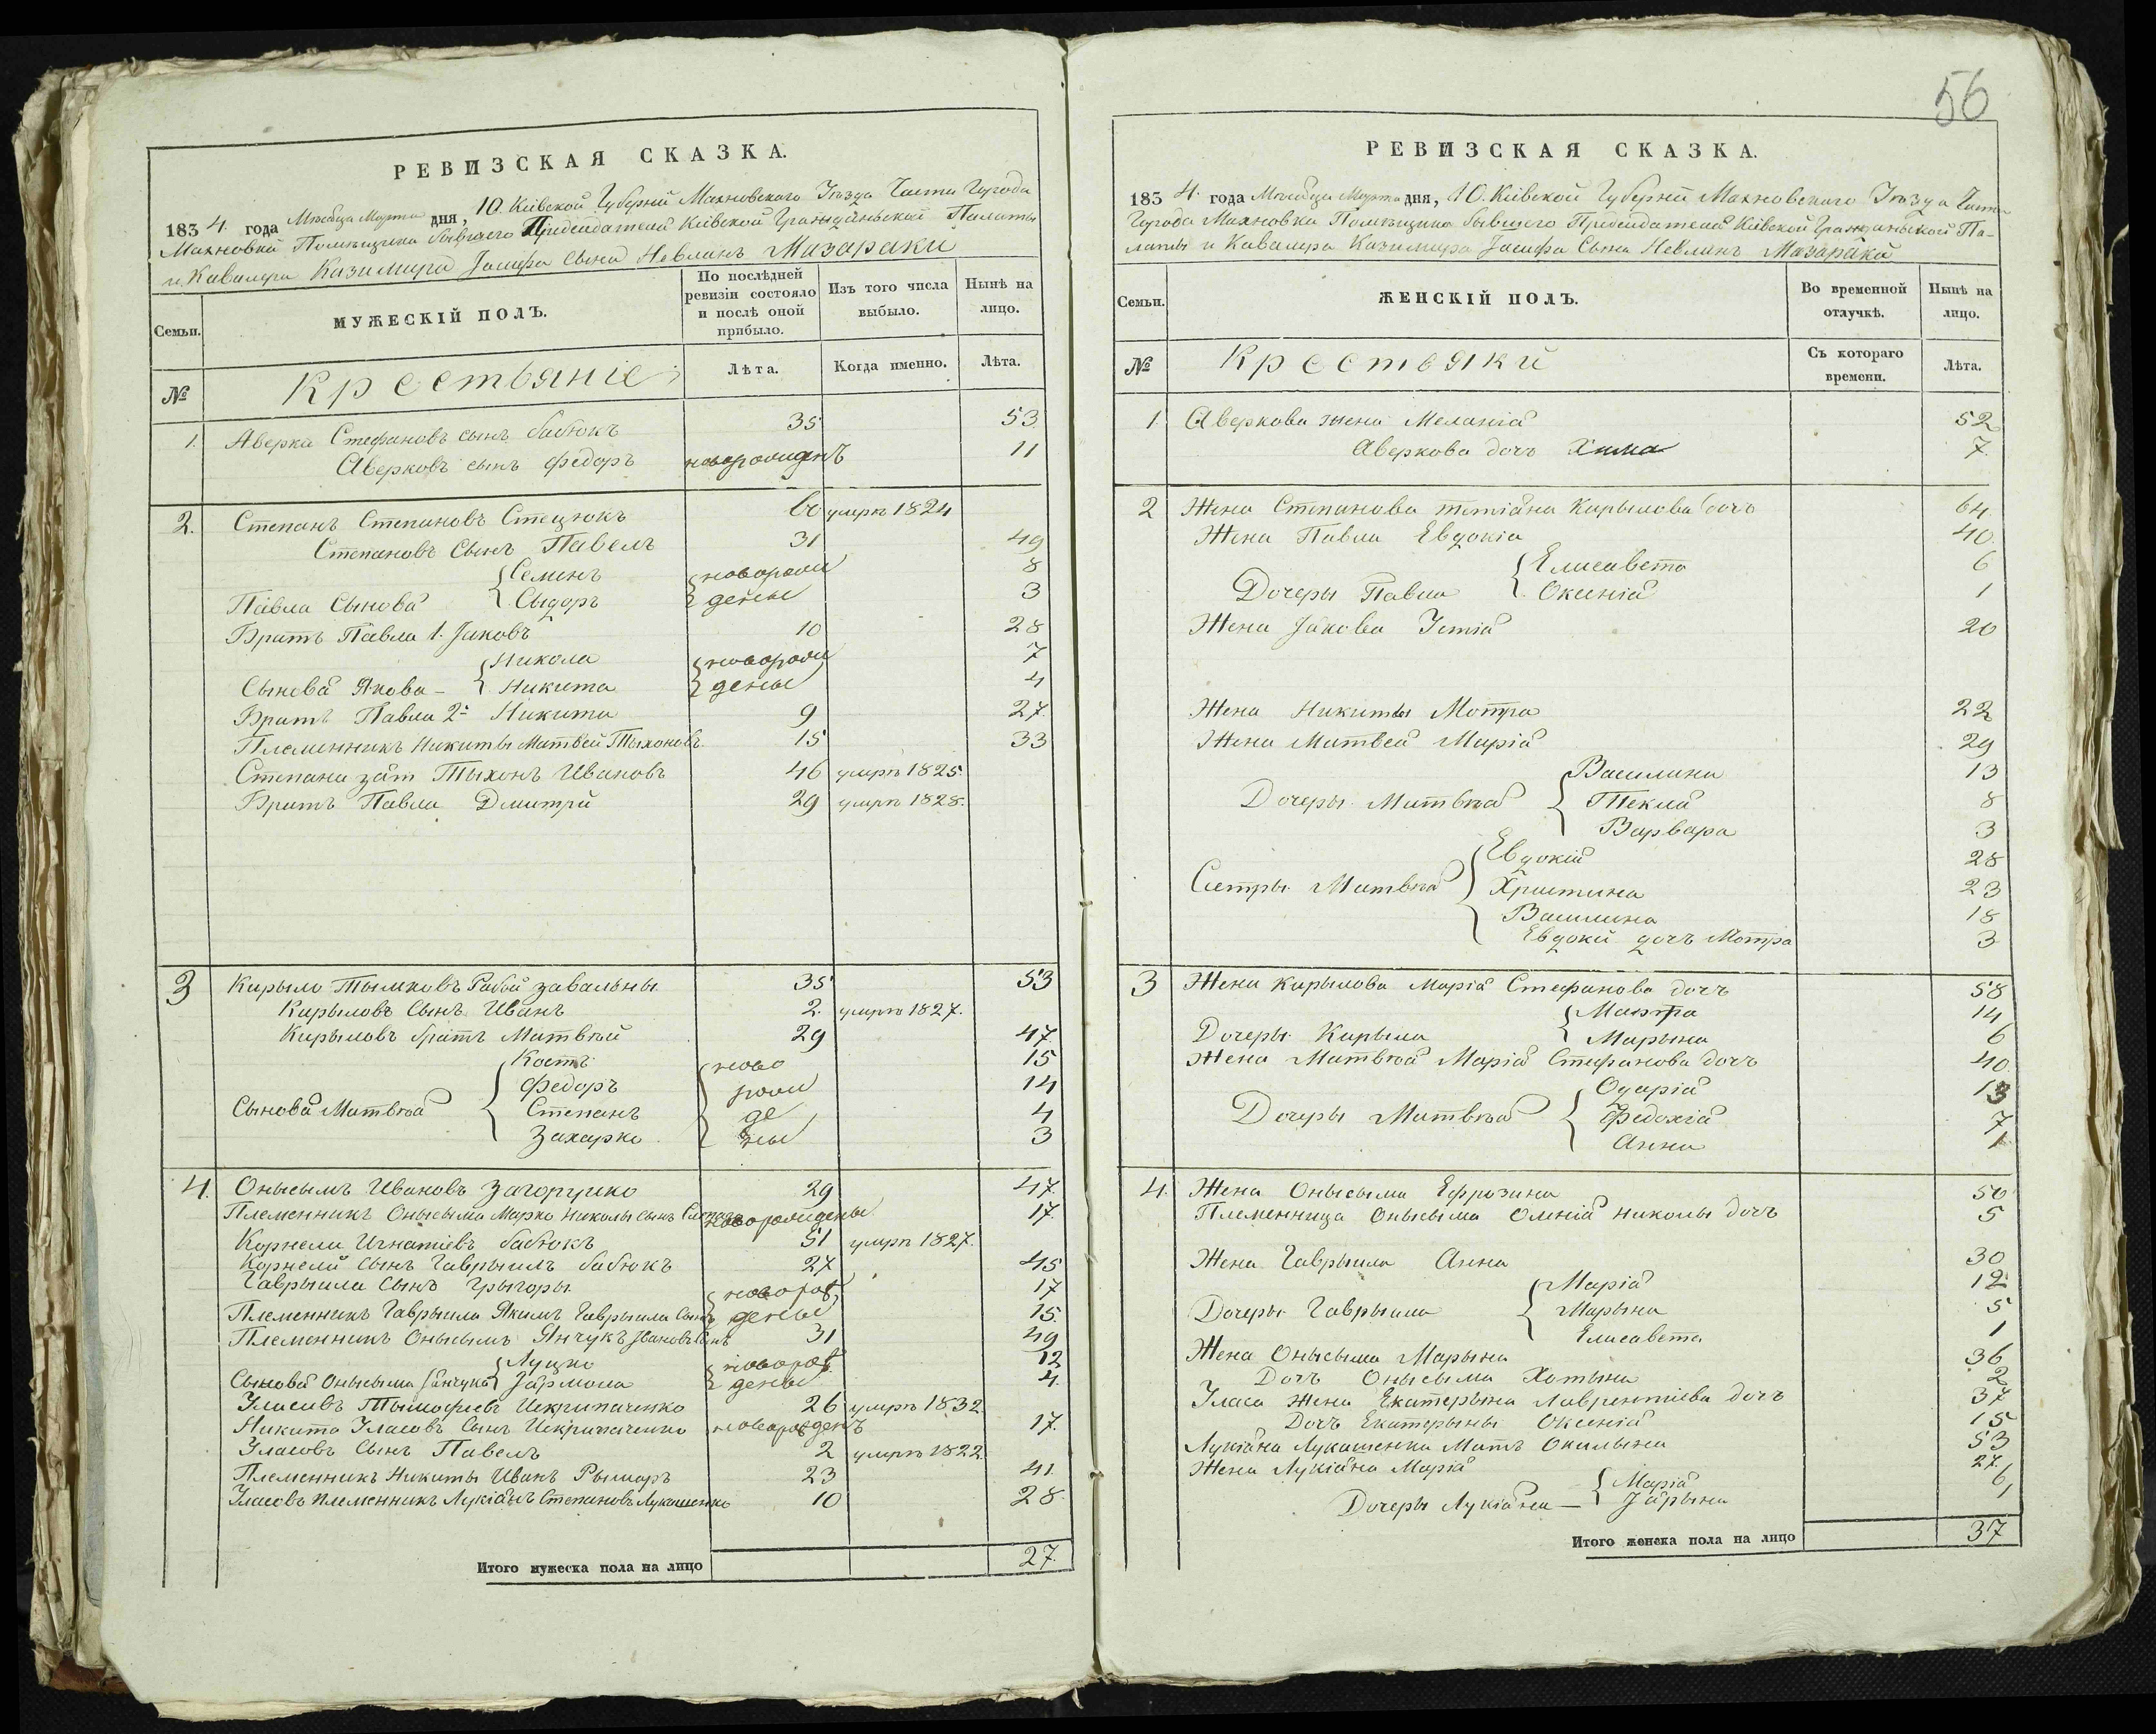 56
РЕВИЗСКАЯ СКАЗКА.
1834 года Мѣсяца Марта дня, 10. Кіевской Губерніи Махновскаго Уѣзда Части Города
Махновки Помѣщика бывшаго Предсѣдателя Кіевской Гражданьской Палаты
и Кавалера Казимира Іосифа Сына Невлинъ Мазараки
Семьи.
МУЖЕСКІЙ ПОЛЪ.
По послѣдней ревизіи состояло и послѣ оной прибыло.
Изъ того числа выбыло.
Нынѣ на лицо.
№ Крестьяніе Лѣта. Когда именно. Лѣта.
1. Аверка Стефановъ сынъ бабюкъ 35 53
Аверковъ сынъ Федоръ новорожденъ 11
2. Степанъ Степановъ Стецюкъ 60 умеръ 1824
Степановъ Сынъ Павелъ 31 49
Семенъ новорож 8
Павла Сынова Сыдоръ дены 3
Братъ Павла 1. Јаковъ 10 28
Никола новорож 7
Сынова Якова – Никита дены 4
Братъ Павла 2й Никита 9 27
Племенникъ Никиты Матвей Тыхоновъ 15 33
Степана зат Тыхонъ Ивановъ 46 умеръ 1825.
Братъ Павла Дмитрй 29 умеръ 1828.
3 Кирыло Тымковъ Рабой завальны 35 53
Кирыловъ Сынъ Иванъ 2. умеръ 1827.
Кирыловъ братъ Матвѣй 29 47
Костъ ново 15
Федоръ рож 14
Сынова Матвѣа Степанъ де 4
Захарко ны 3
4. Онысымъ Ивановъ Загоруйко 29 47
Племенникъ Онысыма Марко Николы сынъ новорожденъ 17.
Корнели Игнатіевъ бабюкъ 51 умеръ 1827.
Корнелй Сынъ Гаврыилъ бабюкъ 27 45
Гаврыила Сынъ Грыгоры новорож 17
Племенникъ Гаврыила Якимъ Гаврыила Сынъ дены 15.
Племенникъ Онысымъ Янчукъ Јвановъ Сынъ 31 49
Луцко новорож 12
Сынова Онысыма Јанчука Јармола дены 4.
Уласивъ Тымофіевъ 26 умеръ 1832
Никита Уласовъ Сынъ новорожденъ 17.
Уласовъ Сынъ Павелъ 2 умеръ 1822.
Племенникъ Никиты Иванъ Рымаръ 23 41.
Уласовъ племенникъ Лукіанъ Степановъ Лукашенко 10 28.
Итого мужеска пола на лицо 27.
РЕВИЗСКАЯ СКАЗКА.
1834. года Мѣсяца Марта дня, 10. Кіевской Губерніи Махновскаго Уѣзда Части
Города Махновки Помѣщика бывшего Предсѣдателя Кіевской Гражданьской Па-
латы и Кавалера Казимира Јосифа Сына Невлинъ Мазараки
Семьи.
ЖЕНСКІЙ ПОЛЪ.
Во временной отлучкѣ.
Нынѣ на лицо.
№ Крестьянки Съ котораго времени. Лѣта.
1 Аверкова жена Меланіа 52
Аверкова доч Хима 7.
2 Жена Степанова тетіана Кирылова доч 64.
Жена Павла Евдокіа 40.
Елисавета 6
Дочеры Павла Оксеніа 1
Жена Јакова Устіа 20
Жена Никиты Мотра 22
Жена Матвеа Маріа 29
Василина 13
Дочеры Матвѣа Текла 8
Варвара 3
Евдокіа 28
Систры Матвѣа Христина 23
Василина 18
Евдокй дочъ Мотра 3
3 Жена Кирылова Маріа Стефанова дочъ 58
Мантра 14
Дочеры Кирыла Марына 6
Жена Матвѣа Маріа Стефанова дочъ 40.
Одаріа 13
Дочеры Матвѣа Федохіа 7
Анна 1
4. Жена Онысыма Ефрозина 50
Племенница Онысыма Оленіа Николы дочъ 5
Жена Гаврыила Анна 30
Маріа 12
Дочеры Гаврыила Марына 5
Елисавета 1
Жена Онысыма Марына 36
Дочъ Онысыма Хотына 2
Уласа жена Екатерына Лаврентіева дочъ 37
Дочъ Екатерыны Оксеніа 15
Лукіана Лукашенка Мать Окилына 53
Жена Лукіана Маріа 27.
Маріа 6
Дочеры Лукіана – Јарына 1
Итого женска пола на лицо 37